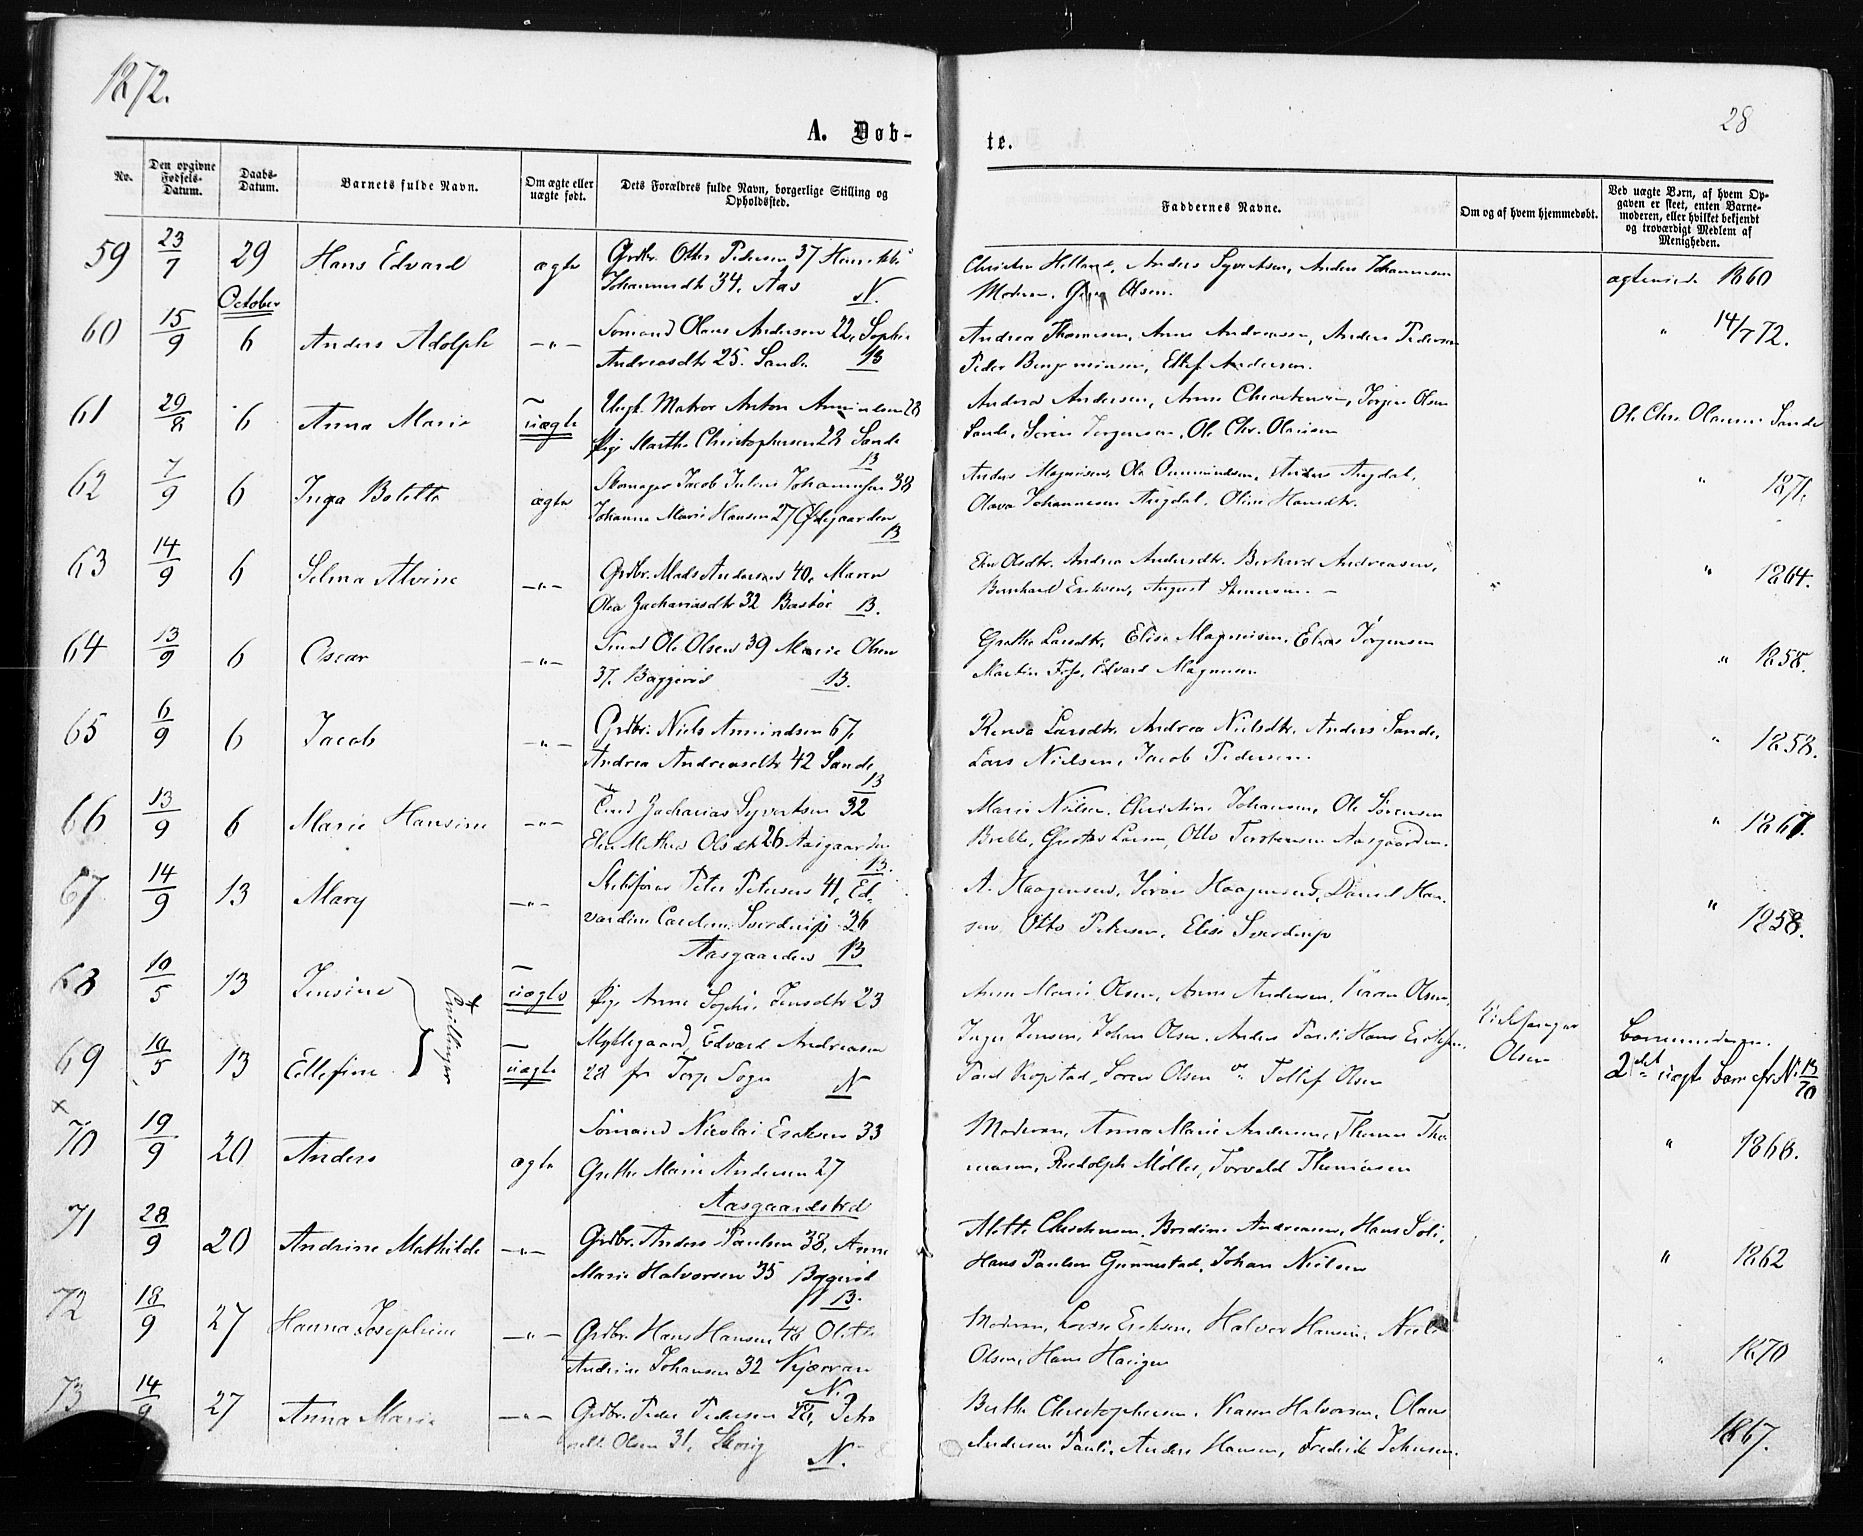 1872.
28
A. Døb-
te.
No.
Den opgivne Fødsels-Datum.
Daabs-Datum.
Barnets fulde Navn.
Om ægte eller uægte født.
Dets Forældres fulde Navn, borgerlige Stilling og Opholdssted.
Faddernes Navne.
Om og af hvem hjemmedøbt.
Ved uægte Børn, af hvem Opgaven er skeet, enten Barnemoderen, eller hvilket bekjendt og troværdigt Medlem af Menigheden.
59 23/7 29 Hans Edvard ægte Grdbr. Otter Pedersen 37
Johannesdtr 34. Aas N.
Anders Syvertsen, Anders Johannesen
Moderen, Olsen.
1860
October
60 15/9 6 Anders Adolph —"— Sømand Olaus Andersen 22, Sophie
Andreasdtr 25. Sande B
Andrea Thomesen, Anne Andreassen, Anders Pedersen
Peder Benjaminsen, Ellef Andersen.
" 14/7 72.
61 29/8 6 Anna Marie uægte Ungk. Matros Anton Amundsen 28
Pige Marthe Christophersen 28 Sande
B
Andrea Andersen, Anne Christensen, Jørgen Olsen
Sande, Søren Jørgensen, Ole Chr. Olausen
Ole Chr. Olaussen Sande
62 7/9 6 Inga Bolette ægte Skomager Jacob Julius Johannesen 38
Johanne Marie Hansen 27 Ødegaarden
B
Anders Magnusen, Ole Amundsen, Anders Augdal,
Olava Johannesen Augdal, Oline Hansdtr.
" 1871.
63 14/9 6 Selma Alvine —"— Grdbr. Mads Andersen 40, Maren
Olea Zachariasdtr 32 Bastøe B.
Olsdtr. Andrea Andersdtr. Berhard Andreasen,
Bernhard Eriksen, August
" 1864.
64 13/9 6 Oscar —"— Smed Ole Olsen 39 Marie Olsen
37. Baggerød B.
Grethe Larsdtr. Elise Magnusen, Elias Jørgensen
Martin Foss, Edvard Magnusen
" 1858.
65 6/9 6 Jacob —"— Grdbr. Niels Amundsen 67,
Andrea Andreasdtr 42 Sande
B
Larsdtr. Andrea Nielsdtr. Anders Sande,
Lars Nielsen, Jacob Pedersen.
" 1858.
66 13/9 6 Marie Hansine —"— Zacharias Syvertsen 32
Olsdtr 26 Aasgaarden
B.
Marie Nielsen, Christine Johansen, Ole Sørensen
Brekke, Gustav Larsen, Otto Torstensen Aasgaarden.
" 1867.
67 14/9 13 Mary —"— Peter Petersen 41, Ed-
vardine Caroline Sverdrup 36
Aasgaarden B
A. Haagensen, Haagensen, Daniel Han-
sen, Otto Petersen, Elise Sverdrup
" 1858.
68 10/5 13 Jensine uægte Pige Anne Sophie Jensdtr 23
Anne Marie Olsen, Anne Andersen, Karen Olsen,
Tvillinger
69 10/5 13 Ellefine uægte Møllegaard, Edvard Andreasen
28 fr Torp Sogn N
Inger Jensen, Johan Olsen, Anders Pauli, Hans Eriksen,
Paul Kopstad, Søren Olsen og Tollef Olsen
Kirkesanger
Olsen
Barnemoderen.
2det uægte Barn cfr No 13/70
x
70 19/9 20 Anders ægte Sømand Nicolai Eriksen 33
Grethe Marie Andersen 27
Aasgaardstrd
Moderen, Anna Marie Andersen, Thomas Tho-
masen, Rudolph Møller, Torvald Thomasen
" 1868.
71 28/9 20 Andrine Mathilde —"— Grdbr. Anders Paulsen 38, Anne
Marie Halvorsen 35 Byggerød
B.
Mette Christensen, Andreasen, Hans
Hans Paulsen Gunnestad, Johan Nielsen
" 1862
72 18/9 27 Hanna Josephine —"— Grdbr. Hans Hansen 48
Andrine Johansen 32 Kjærran
N.
Moderen, Eriksen, Halvor Hansen, Niels
Olsen, Hans Haugen
" 1870
73 14/9 27 Anna Marie —"— Grdbr. Peder Pedersen Petro
nelle Olsen 31, N.
Berthe Christophersen, Karen Halvorsen, Olaus
Andersen Pauli, Anders Hansen, Fredrik Johnsen.
1867.